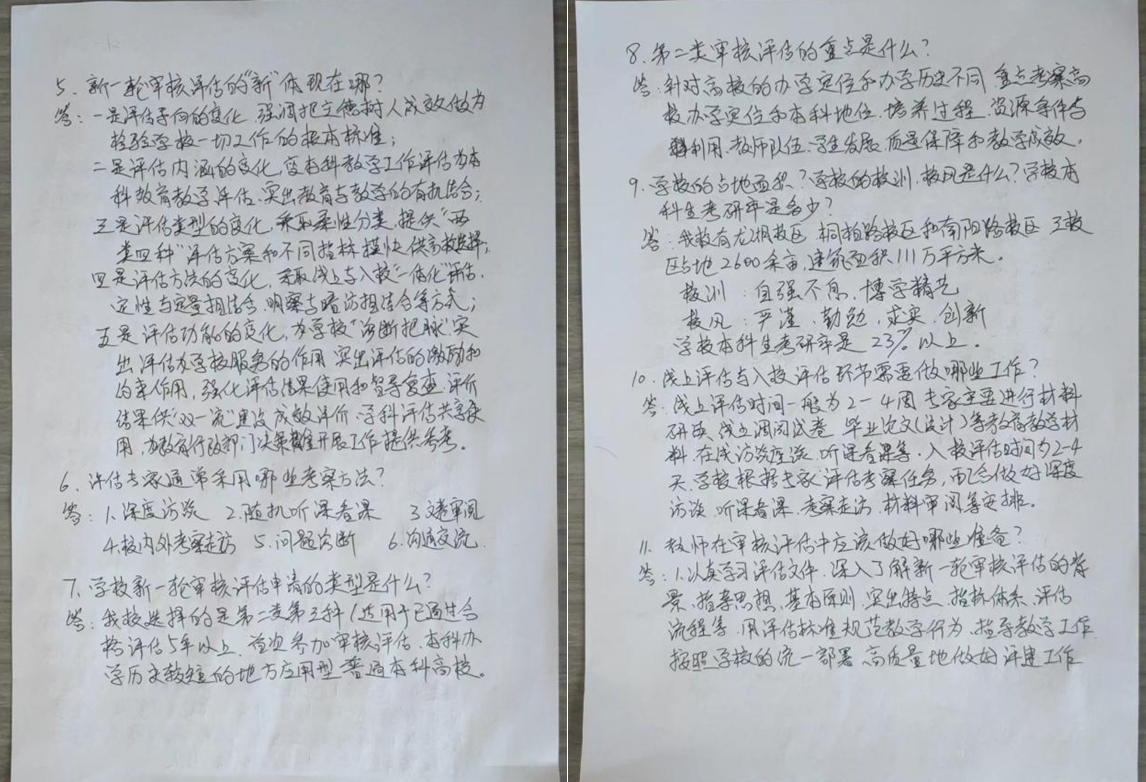 5. 新一轮审核评估的“新”体现在哪?
答:一是评估导向的变化,强调把立德树人成效做为
检验学校一切工作的根本标准;
二是评估内涵的变化,变本科教学工作评估为本
科教育教学评估,突出教育与教学的有机结合;
三是评估类型的变化,采取柔性分类,提供“两
类四种”评估方案和不同指标模块供高校选择;
四是评估方法的变化,采取线上与入校一体化评估,
定性与定量相结合,明察与暗访相结合等方式;
五是评估功能的变化,为学校“诊断把脉”突
出评估为学校服务的作用,突出评估的激励和
约束作用,强化评估结果使用和督导复查,评价
结果供“双一流”建设成效评价、学科评估共享使
用,为教育行政部门决策开展工作提供参考。
6. 评估专家通常采用哪些考察方法?
答:1.深度访谈 2.随机听课看课 3.文卷审阅
4.校内外考察走访 5.问题诊断 6.沟通交流.
7. 学校新一轮审核评估申请的类型是什么?
答:我校选择的是第二类第三种(适用于已通过合
格评估5年以上,首次参加审核评估、本科办
学历史较短的地方应用型普通本科高校。
8. 第二类审核评估的重点是什么?
答:针对高校的办学定位和办学历史不同,重点考察高
校办学定位和本科地位、培养过程、资源条件与
利用、教师队伍、学生发展、质量保障和教学成效。
9. 学校的占地面积?学校的校训、校风是什么?学校本
科生考研率是多少?
答:我校有龙湖校区、桐柏路校区和南阳路校区三校
区占地2600余亩,建筑面积111万平方米。
校训:自强不息、博学精艺
校风:严谨、勤勉、求实、创新
学校本科生考研率是23%以上。
10. 线上评估与入校评估环节需要做哪些工作?
答:线上评估时间一般为2-4周,专家主要进行材料
研读、线上调阅试卷、毕业论文(设计)等教育教学材
料,在线访谈座谈、听课看课等。入校评估时间为2-4
天,学校根据专家评估考察任务,配合做好深度
访谈、听课看课、考察走访、材料审阅等安排。
11. 教师在审核评估中应该做好哪些准备?
答:1.认真学习评估文件,深入了解新一轮审核评估的背
景、指导思想、基本原则、突出特点、指标体系、评估
流程等,用评估标准规范教学行为,指导教学工作.
按照学校的统一部署,高质量地做好评建工作